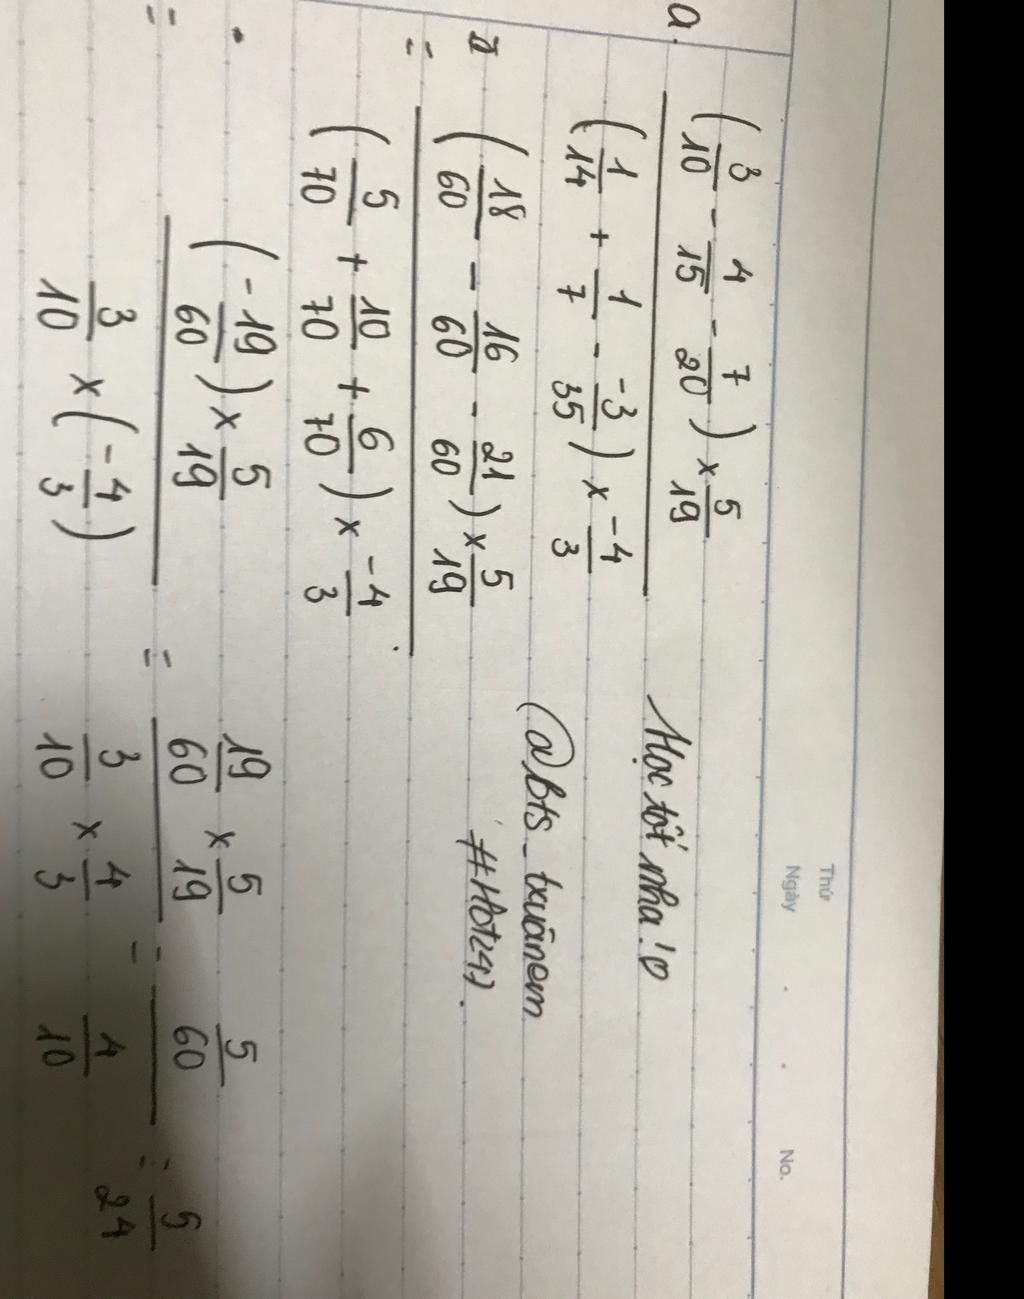 Thứ
Ngày . . No.
a.
(3/10 - 4/15 - 7/20) × 5/19
(1/14 + 1/7 - -3/35) × -4/3
Học tốt nha!
=
(18/60 - 16/60 - 21/60) × 5/19
(5/70 + 10/70 + 6/70) × -4/3
@Bts_txuānem
=
(-19/60) × 5/19
3/10 × (-4/3)
=
19/60 × 5/19
3/10 × 4/3
=
5/60
4/10
= 5/24